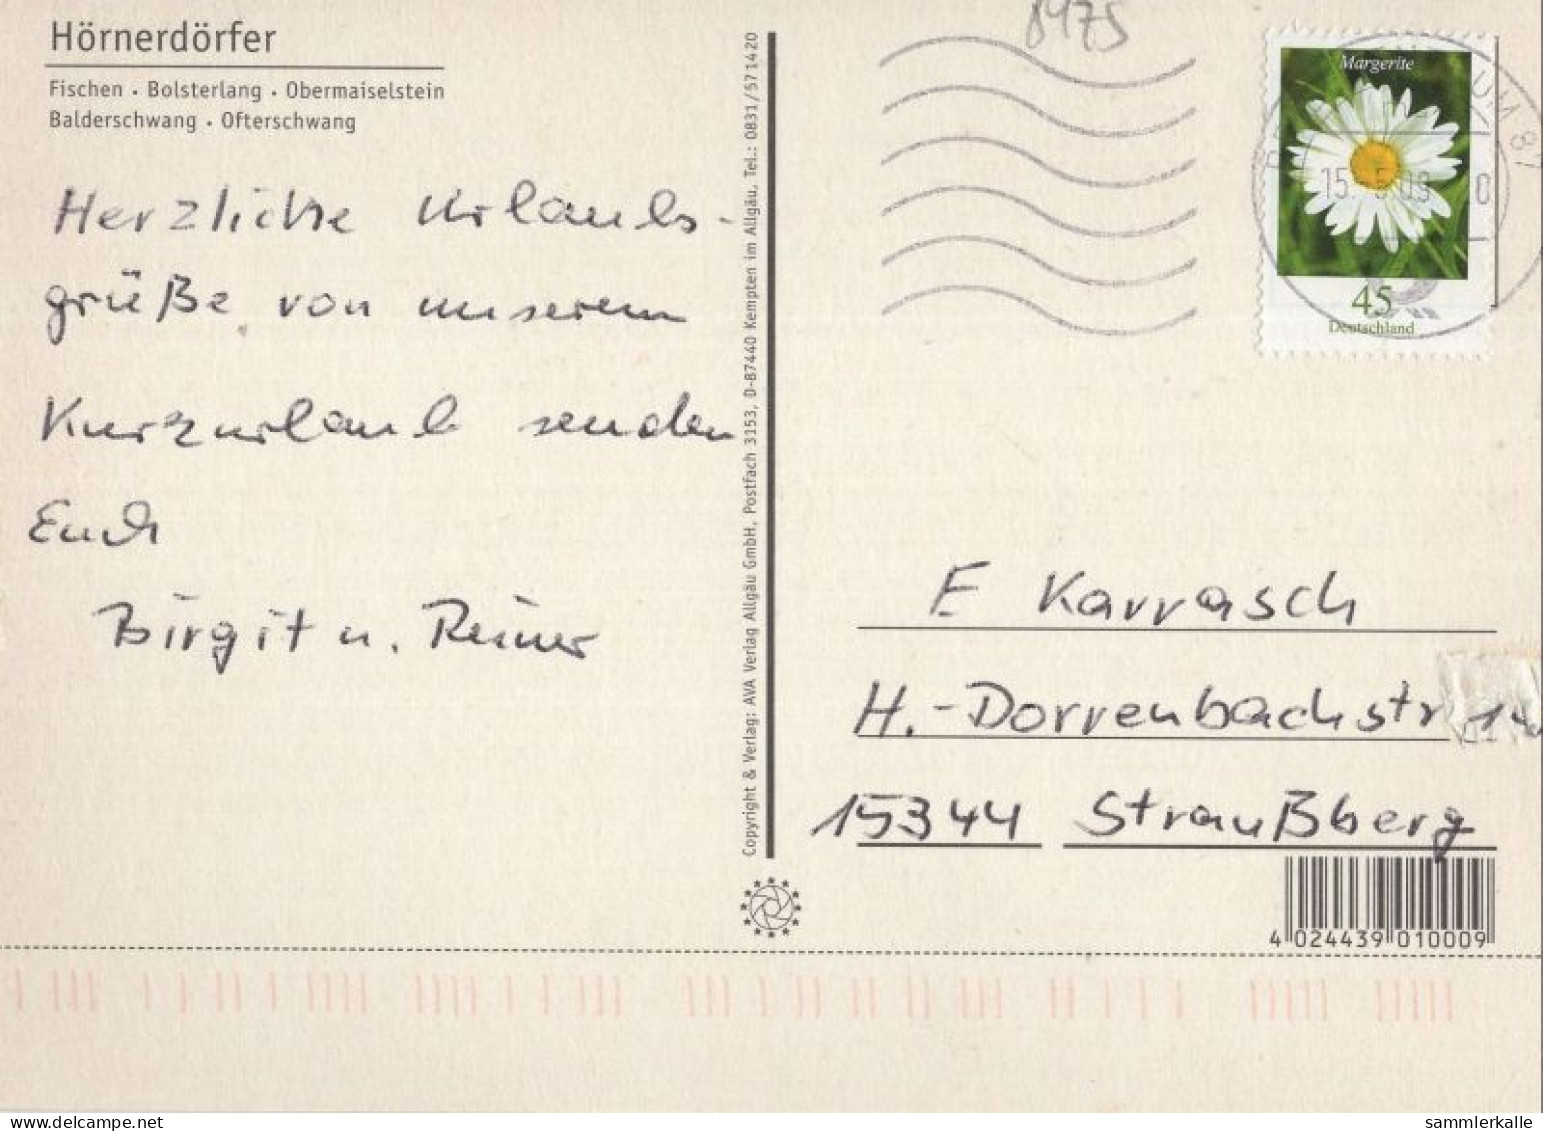 Hörnerdörfer
Fischen • Bolsterlang • Obermaiselstein
Balderschwang • Ofterschwang
Herzliche Urlaubs-
grüße von unserem
Kurzurlaub senden
Euch
Birgit u. Reiner
Copyright & Verlag: AVA Verlag Allgäu GmbH, Postfach 3153, D-87440 Kempten im Allgäu, Tel.: 0831/571420
8975
Margerite
45
Deutschland
E Karrasch
H.-Dorrenbachstr
15344 Straußberg
4 024439 010009
www.delcampe.net
sammlerkalle